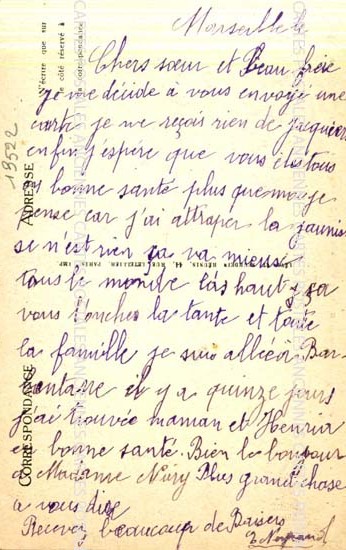 Marseille le
Chers sœur et Beau frère
je me décide a vous envoyé une
carte je ne reçois rien de
enfin j'espère que vous êtes tous
bonne santé plus que moi je
pense car j'ai attraper la jaunis
se n'est rien ça va mieux
tous le monde las haut
vous Donches la tante et toute
la famille je suis allée à Bar
bentane il y a quinze jours
j'ai trouvée maman et Henria
en bonne santé. Bien le bonjour
a Madame Nury Plus grand chose
a vous dire
Recevez beaucoup de Baisers
N'écrire que sur
le côté réservé à
la correspondance
19522
ADRESSE
CORRESPONDANCE